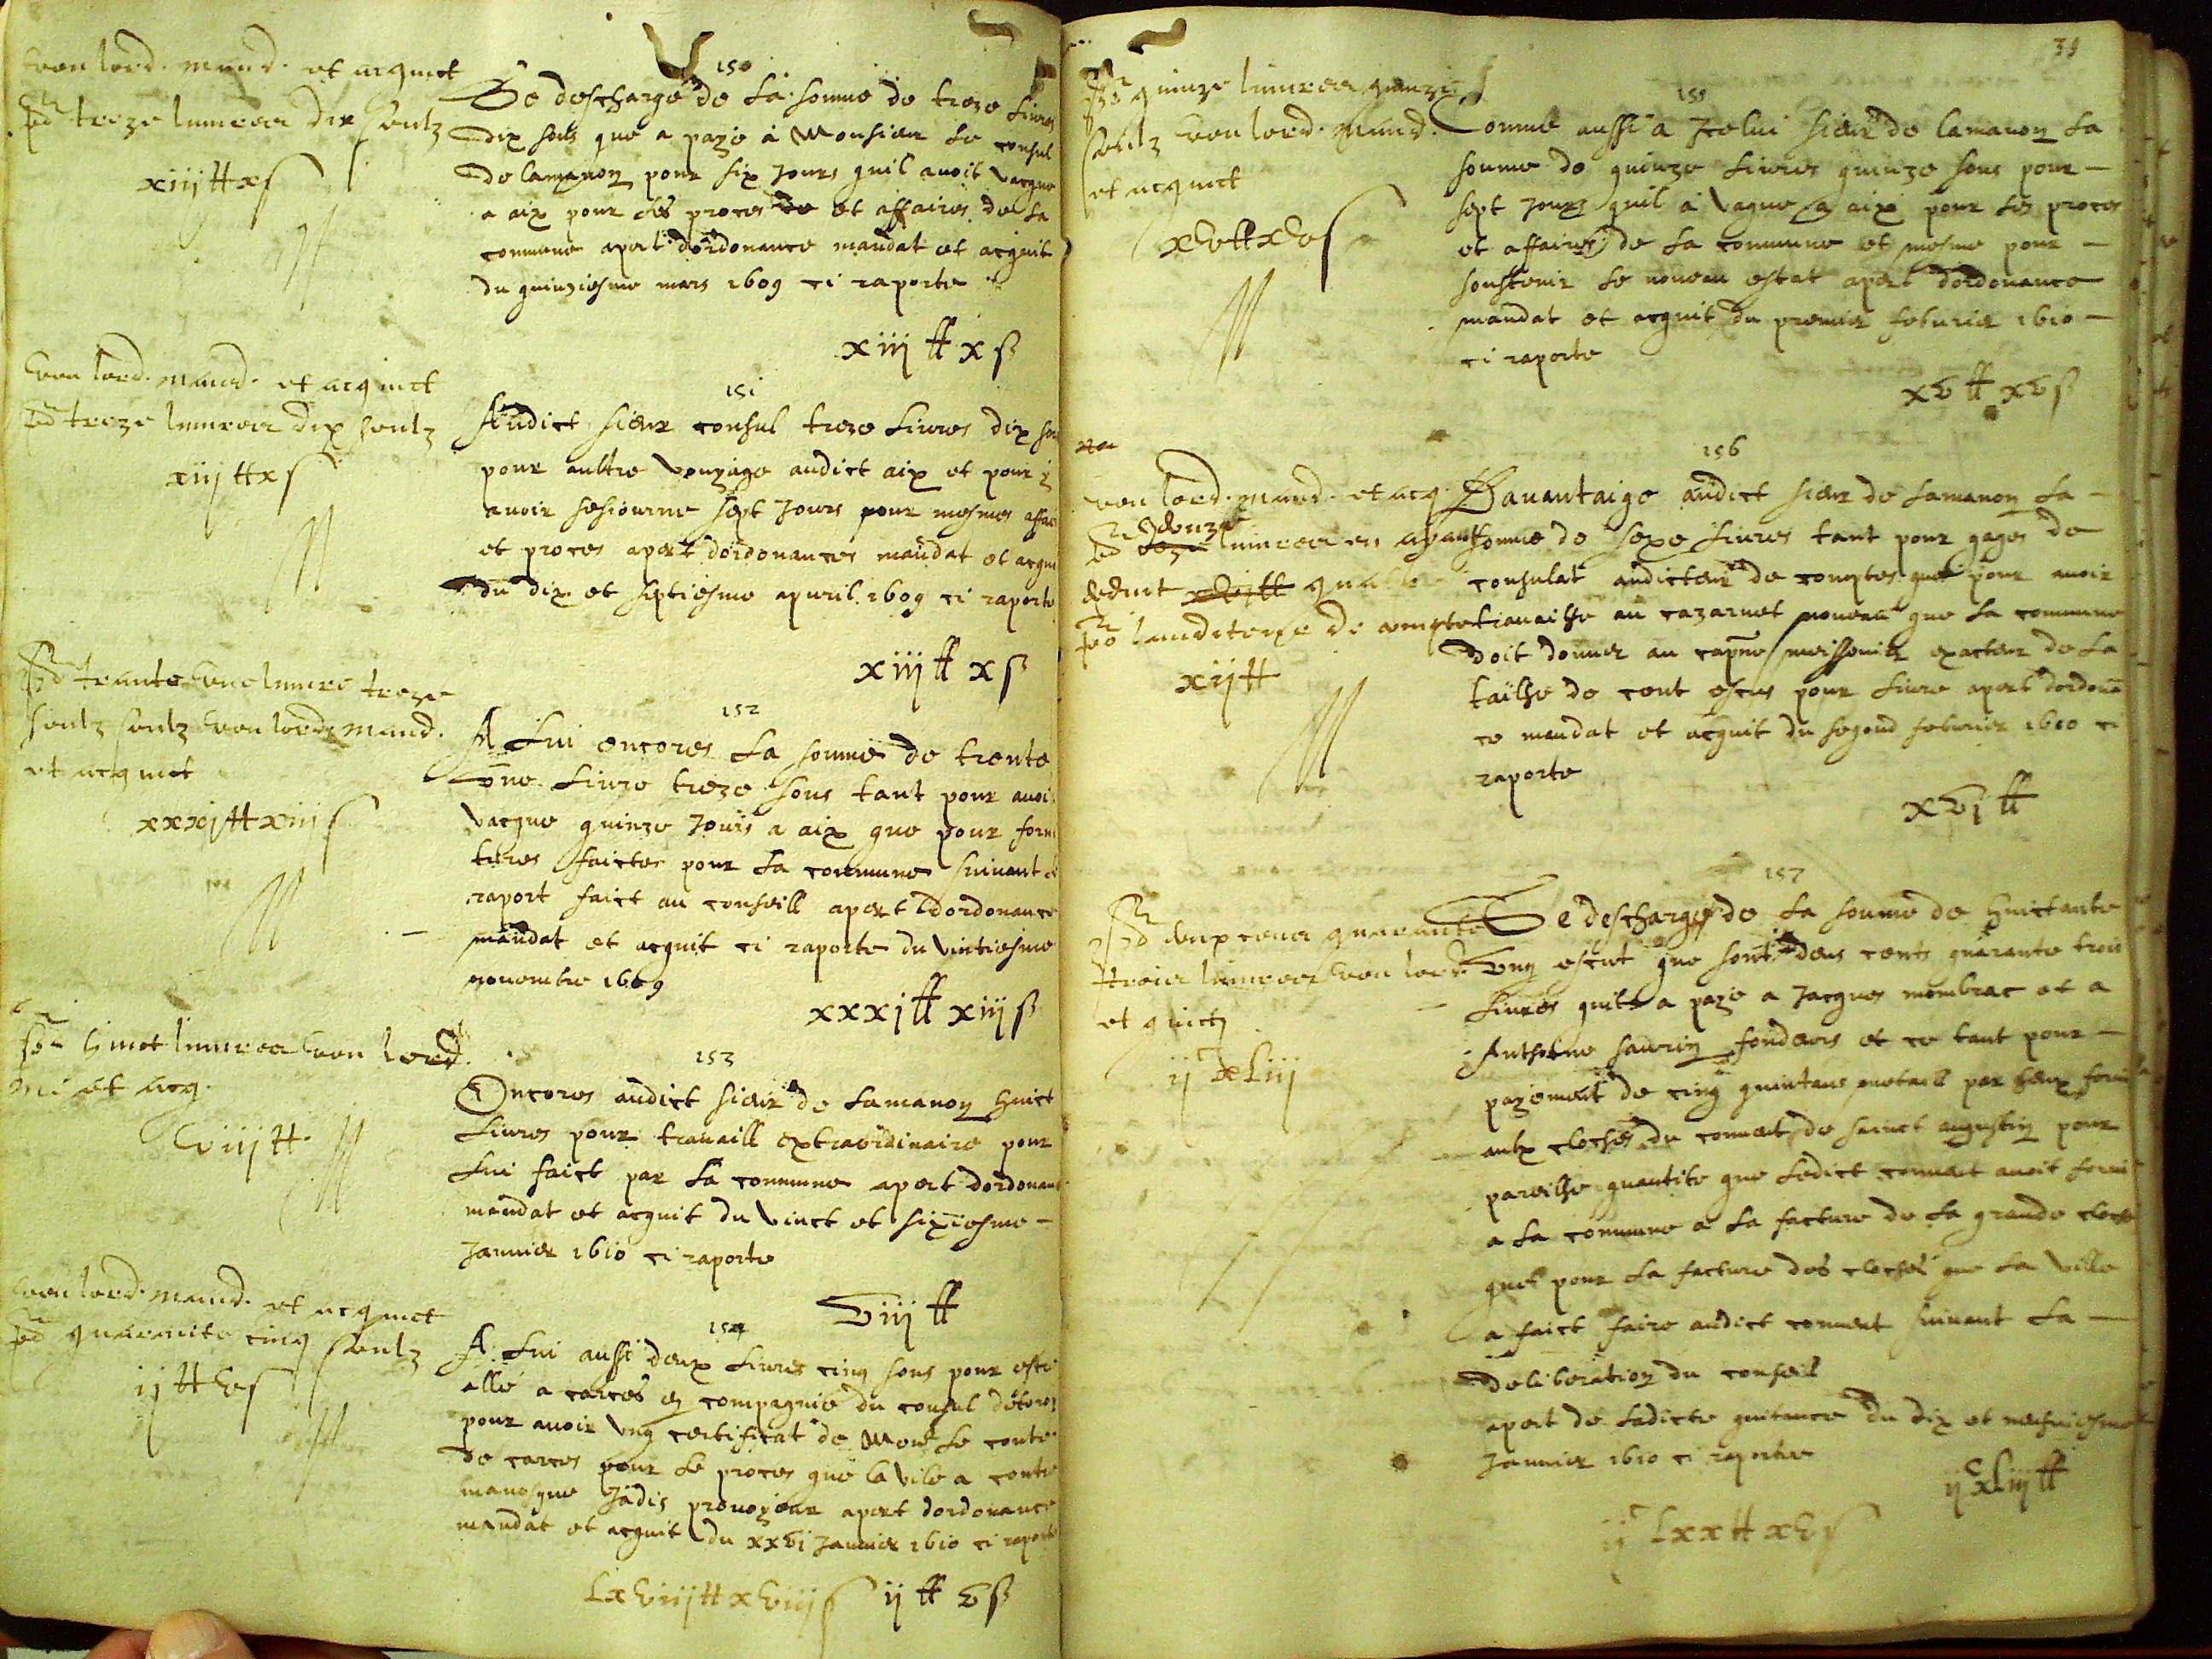 Veu lord. mand. et acquict
po treze livres dix soulz
xiij tt x s
150
Se descharge de la somme de treze livres
dix sous que a paye a Monsieur le consul
de lamanon pour six jours quil avoit vacque
a aix pour les proces et affaires de la
commune apert dordonance mandat et acquit
du quinziesme mars 1609 ci raporte
xiij tt x s
Veu lord. mand. et acquict
po treze livres dix soulz
xiij tt x s
151
Audict sieur consul treze livres dix
pour aultre voyage audict aix et pour y
avoir sesiourne sept jours pour mesmes
et proces apert dordonances mandat et
du dix et septiesme apvril 1609 ci raporte
xiij tt x s
po trante une livre treze
soulz soulz veu lord. mand.
et acquict
xxxj tt xiij s
152
A lui encores la somme de trente
une livre treze sous tant pour avoir
vacque quinze jours a aix que pour
tures faictes pour la commune suivant
raport faict au conseill apert dordonance
mandat et acquit ci raporte du vintiesme
novembre 1609
xxxj tt xiij s
po huict livres veu lord.
et acq.
viij tt
153
Encores audict sieur de lamanon huict
livres pour travaill extraordinaire pour
lui faict par la commune apert dordonance
mandat et acquit du vinct et sixiesme
janvier 1610 ci raporte
viij tt
Veu lord. mand. et acquict
po quarante cinq soulz
ij tt v s
154
A lui aussi deux livres cinq sous pour estre
allé a carces en compagnie du consul
pour avoir ung certificat de Monsr le conte
de carces pour le proces que la vile a contre
manosque jadis apert dordonance
mandat et acquit du xxvi janvier 1610 ci raporte
ij tt v s
lxviiij tt xviij s
po quinze livres quinze
soulz veu lord. mand.
et acquict
xv tt xv s
155
Comme aussi a jcelui sieur de lamanon la
somme de quinze livres quinze sous pour
sept jours quil a vaque a aix pour les proces
et affaires de la commune et mesme pour
soustenir le nouveau estat apert dordonance
mandat et acquit du premier febvrier 1610
ci raporte
xv tt xv s
veu lord. mand. et acq.
po douze livres en ayant
deduit quatre
po lauditeur de comptes
xij tt
156
Davantaige audict sieur de lamanon la
somme de seze livres tant pour gages de
consulat auditeur de comptes que pour avoir
travailhe au cazarnet nouveau que la commune
doit donner au capne meissonier exacteur de la
tailhe de cent escus pour livre apert dordonan
ce mandat et acquit du segond febvrier 1610 ci
raporte
xvj tt
po deux cens quarante
trois livres veu lord.
et quict
ij c xliij
157
Se descharge de la somme de huictante
ung escut que sont deus cents quarante trois
livres quil a paye a Jacques mombrac et a
Anthoine saurin fondeurs et ce tant pour
payement de cinq quintaus metaill par eux
aulx cloches du convent de sainct augustin pour
pareilhe quantite que ledict convent avoit
a la commune a la facture de la grande cloche
que pour la facture des cloches que la ville
a faict faire audict convent suivant la
deliberation du conseil
apert de ladicte quitance du dix et neufviesme
janvier 1610 ci raporte
ij c xliij tt
ij c lxx tt xv s